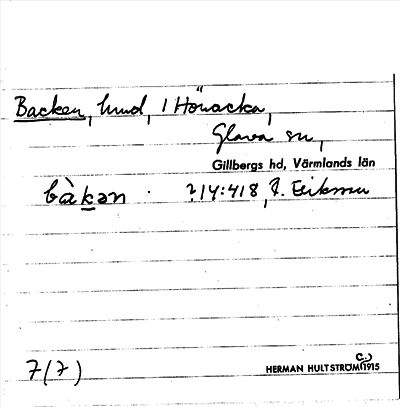 Backen, hmd, 1 Hönacka,
Glava sn,
Gillbergs hd, Värmlands län
bàkən . ?14:418, J. Eriksson
7(7)
HERMAN HULTSTRÖM (C.) 1915